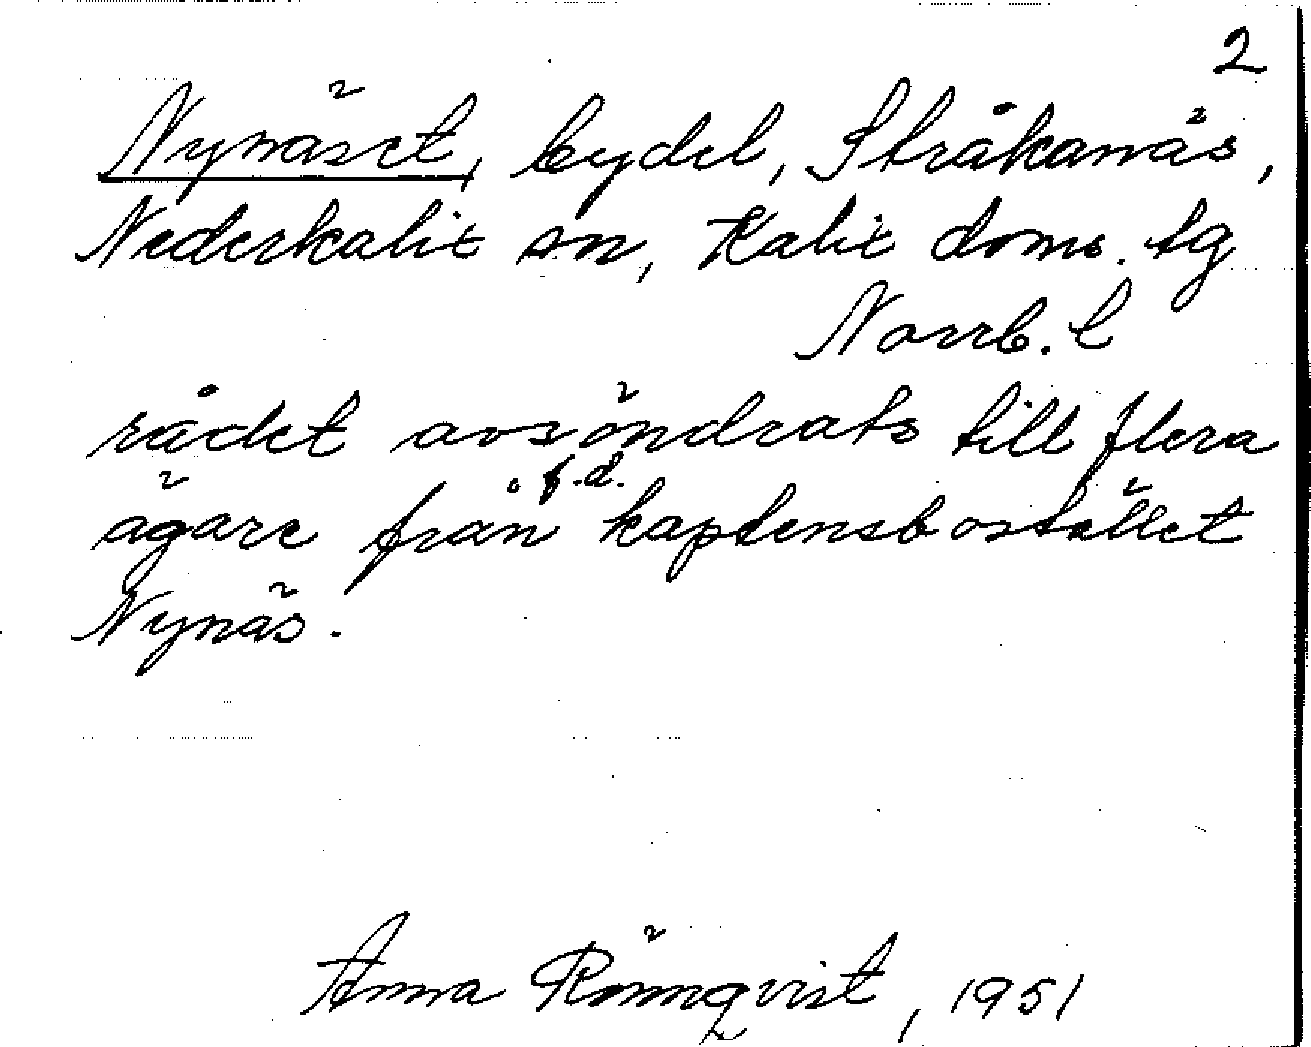 2
Nynäset, bydel, Stråkanäs,
Nederkalix sn, Kalix doms. tg
Norrb. l
rådet avsöndrats till flera
ägare från f.d. kaptensbostället
Nynäs.
Anna Rönnqvist, 1951